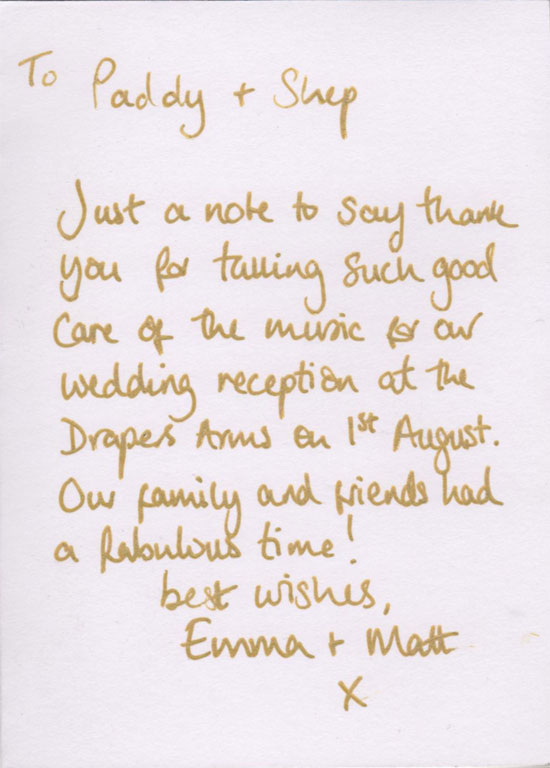 To Paddy + Shep
Just a note to say thank
you for taking such good
care of the music for our
wedding reception at the
Drapers Arms on 1st August.
Our family and friends had
a fabulous time!
best wishes,
Emma + Matt
X